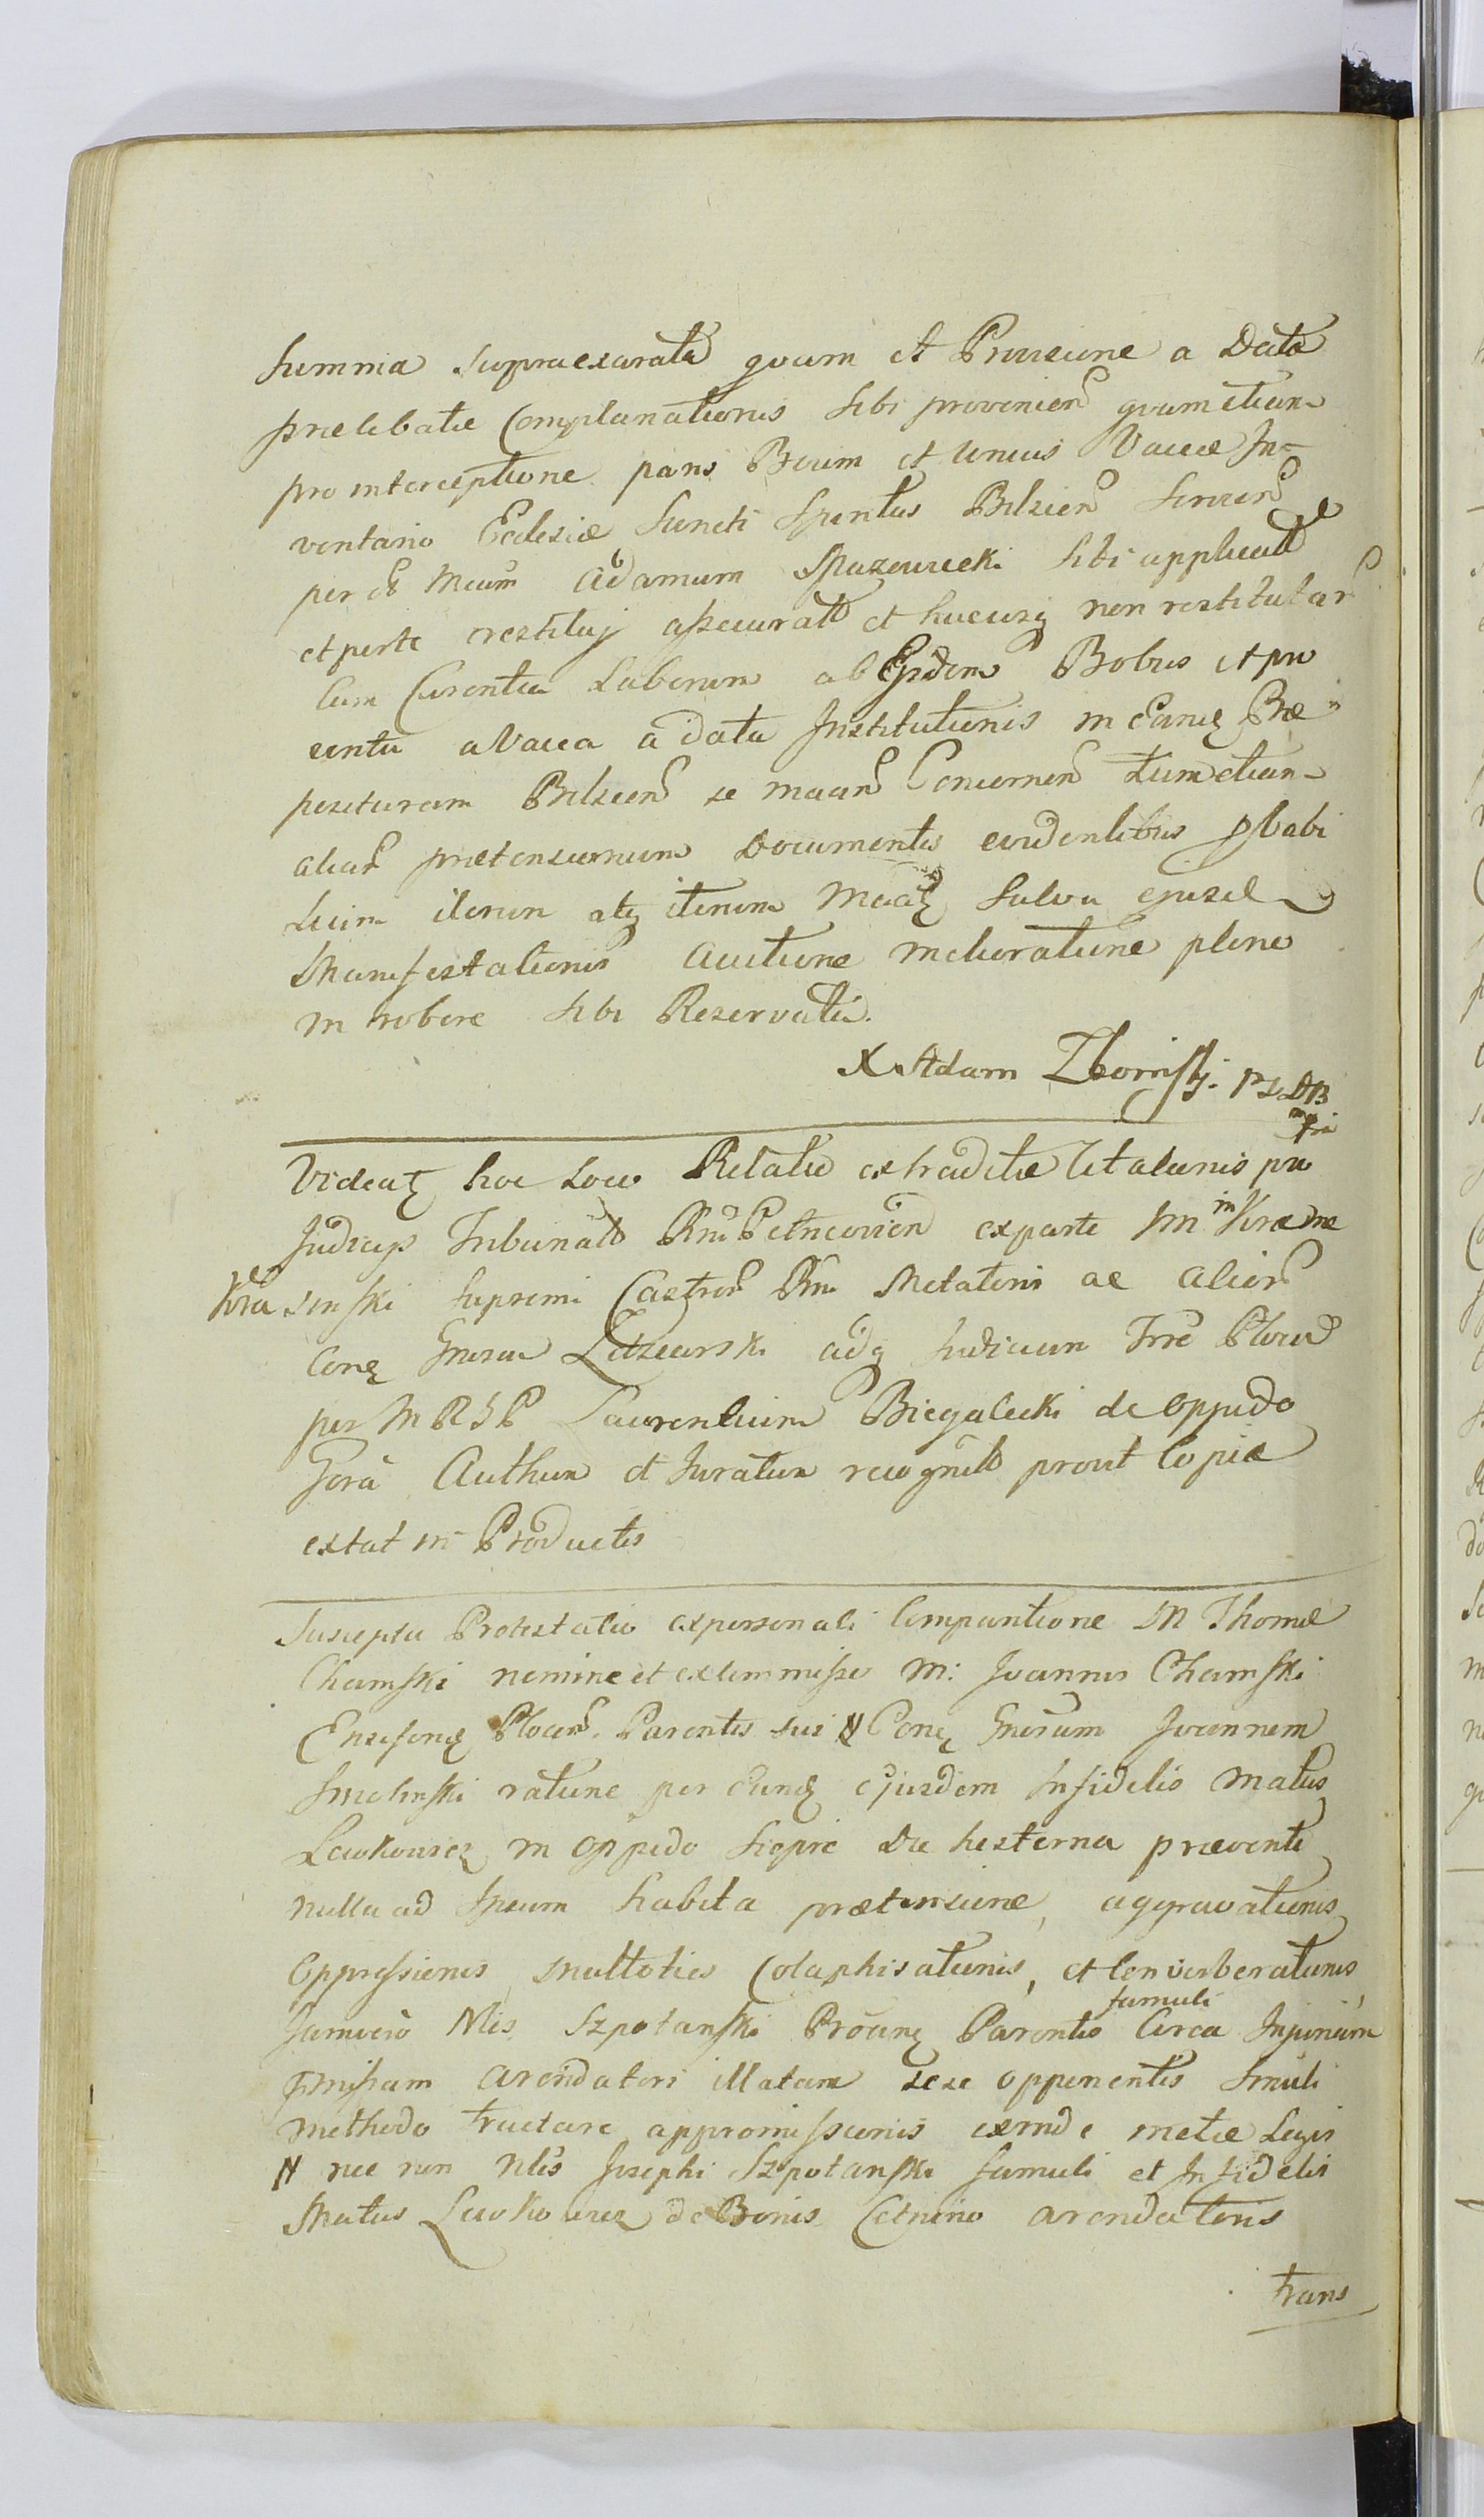 Summa supraexarata quam et Provisione a Data
prælibatæ Complanationis sibi provenien quam etiam
pro interceptione paris Boum et unius Vaccæ In-
ventario Ecclesiæ Sancti Spiritus Bilscen servien
per Adamum Mazowiecki sibi applicatt
et per te restituj assecuratt et hucusq non restitutar
cum Carentia Laborum ab Ejsdem Bobus et pro
ventu a Vacca a data Institutionis in Eandę Præ
posituram Bilscen se Concernen tum etiam
aliar prætensionum Documentis evidentibus pbabi
lium iterum atq iterum salva ejusd
Manifestationis auctione melioratione plene
in robore sibi Reservata.
X Adam Zborowski
Videatʒ hoc loco Relatio extraditæ Citationis pro
Judicijs Tribunatt Rni Petricovien ex parte
Kra sinski supremi Castror Rni Metatoris ac alior
Conʒ Gnosum ad Judicium Trre Plocen
per M R S P Laurentium Biegalecki de oppido
Gora Authen et Juratum recognitt prout Copia
extat in Productis
Suscepta Protestatio ex personali Comparitione M Thomæ
Chamski nomine et ex commisso M: Joannis Chamski
Ensiferi Plocen. Parentis sui N Conʒ Gnosum Joannem
Smolinski ratione per Eundʒ ejusdem Infidelis Matus
Lewkowicz in oppido Sieprc die hesterna præventi
nulla ad Ipsum habita prætensione, aggravationis
oppressionis multoties Colaphisationis, et Converberationis
famuli
Jamvero Nlis Szpotanski Parentis Circa Injuriam
pmissam arendatori illatam sese opponentis simili
methodo tractare appromissionis exinde metæ Legis
N nec non Nlis Josephi Szpotanski famuli et Infidelis
Matus Lewkowicz de Bonis arendatoris
trans